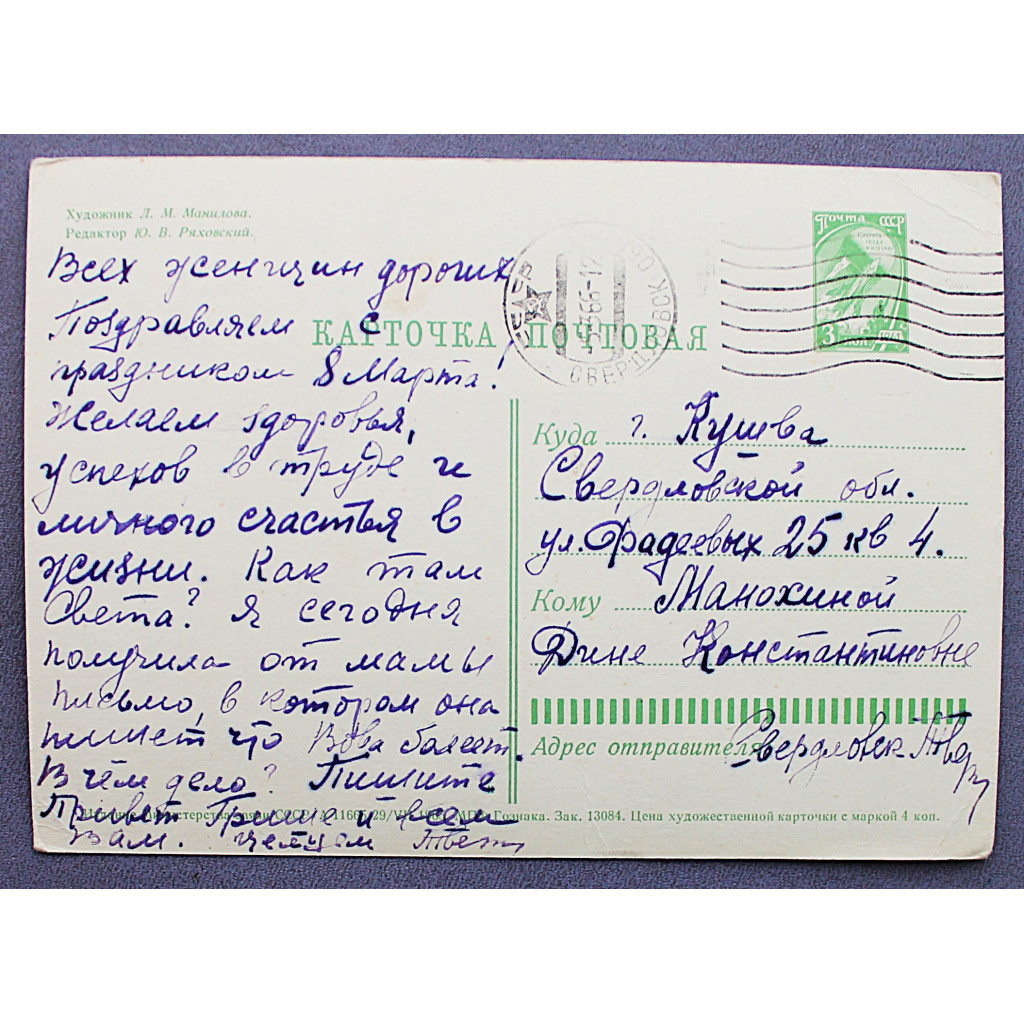 Художник Л. М. Манилова.
Редактор Ю. В. Ряховский.
Всех женщин дорогих,
Поздравляем с
праздником 8 Марта!
Желаем здоровья,
успехов в труде и
личного счастья в
жизни. Как там
Света? Я сегодня
получила от мамы
письмо, в котором она
пишет что Вова болеет.
В чём дело? Пишите
Привет Грише и всем
Вам. Целуем
КАРТОЧКА ПОЧТОВАЯ
СССР
66-12
СВЕРДЛОВСК
Почта СССР
1961
Куда г. Кушва
Свердловской обл.
ул. Фадеевых 25 кв 4.
Кому Манохиной
Дине Константиновне
Адрес отправителя Свердловск
Министерства связи СССР. Гознака. Зак. 13084. Цена художественной карточки с маркой 4 коп.